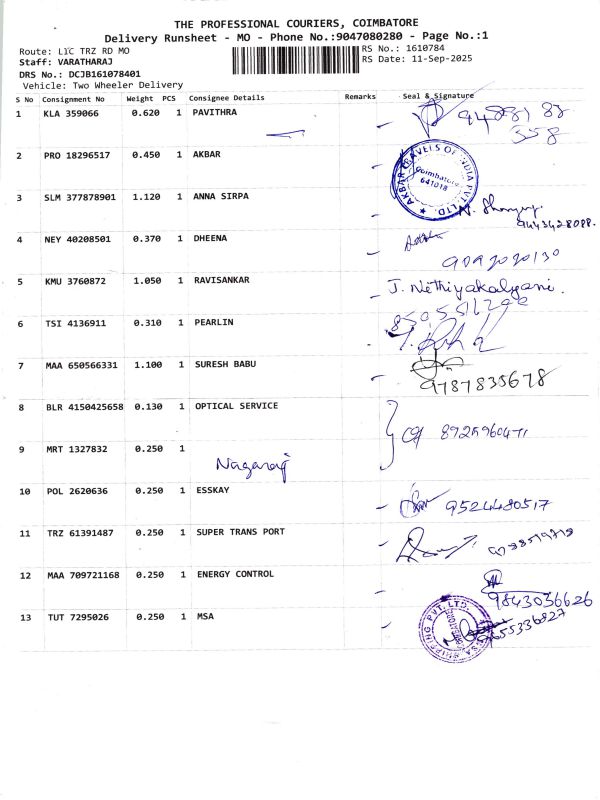 THE PROFESSIONAL COURIERS, COIMBATORE
Delivery Runsheet - MO - Phone No.:9047080280 - Page No.:1
Route: LIC TRZ RD MO RS No.: 1610784
Staff: VARATHARAJ RS Date: 11-Sep-2025
DRS No.: DCJB161078401
Vehicle: Two Wheeler Delivery
S No Consignment No Weight PCS Consignee Details Remarks Seal & Signature
1 KLA 359066 0.620 1 PAVITHRA
358
2 PRO 18296517 0.450 1 AKBAR
AKBAR TRAVELS OF INDIA PVT. LTD.
Coimbatore
641018
3 SLM 377878901 1.120 1 ANNA SIRPA
9443428088.
4 NEY 40208501 0.370 1 DHEENA
9092020130
5 KMU 3760872 1.050 1 RAVISANKAR J. Nethiyakalyani.
6 TSI 4136911 0.310 1 PEARLIN
7 MAA 650566331 1.100 1 SURESH BABU
9787835678
8 BLR 4150425658 0.130 1 OPTICAL SERVICE
8925960471
9 MRT 1327832 0.250 1
Nagaraj
10 POL 2620636 0.250 1 ESSKAY 9524480517
11 TRZ 61391487 0.250 1 SUPER TRANS PORT
12 MAA 709721168 0.250 1 ENERGY CONTROL
9843036626
13 TUT 7295026 0.250 1 MSA
9655336827